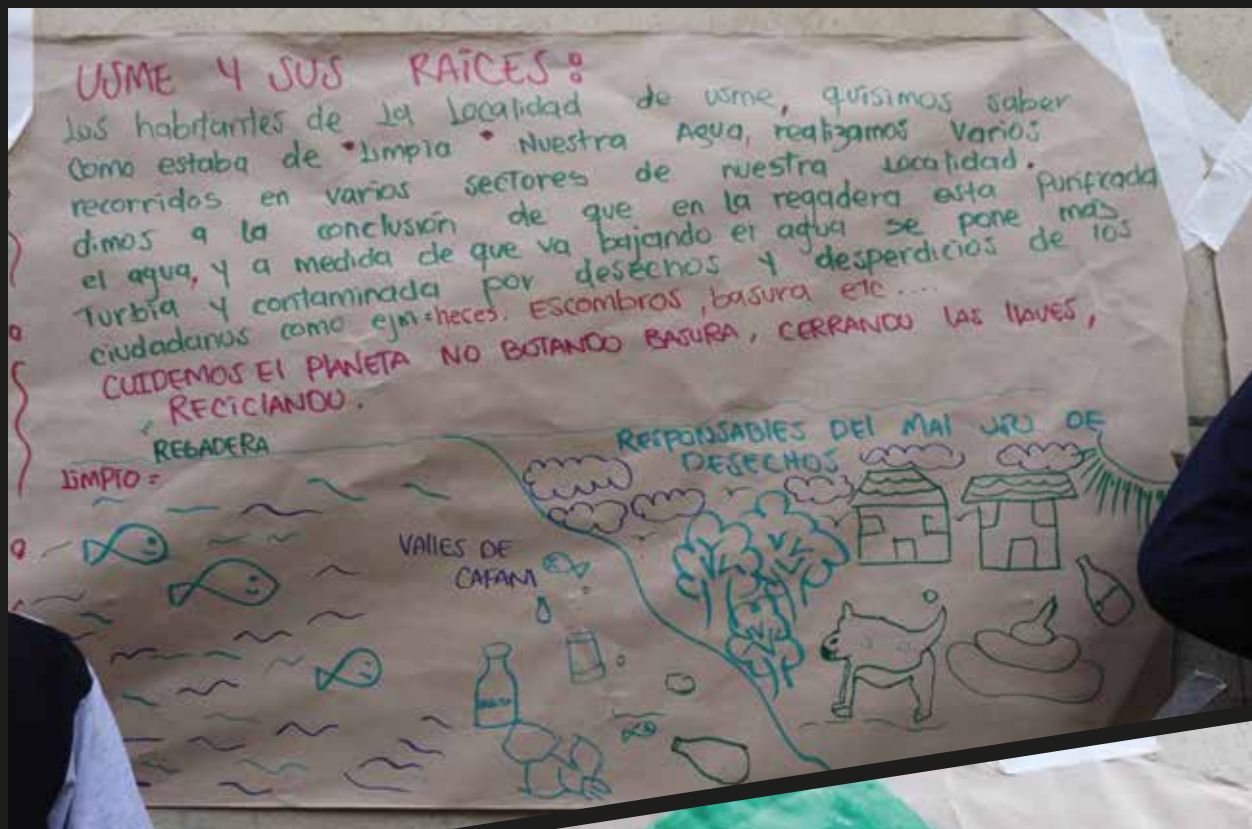 USME Y SUS RAÍCES:
Los habitantes de la Localidad de usme, quisimos saber
como estaba de "Limpia" Nuestra Agua, realizamos varios
recorridos en varios sectores de nuestra Localidad.
dimos a la conclusión de que en la regadera esta purificada
el agua, y a medida de que va bajando el agua se pone mas
Turbia y contaminada por desechos y desperdicios de los
ciudadanos como ejm=heces. Escombros, basura etc....
CUIDEMOS El PlANETA NO BOTANDO BASURA, CERRANDO lAS llAVES,
RECIClANDO.
REGADERA
RESPONSABLES DEl MAl USO DE
DESECHOS
LIMPIO =
VAllES DE
CAFAM